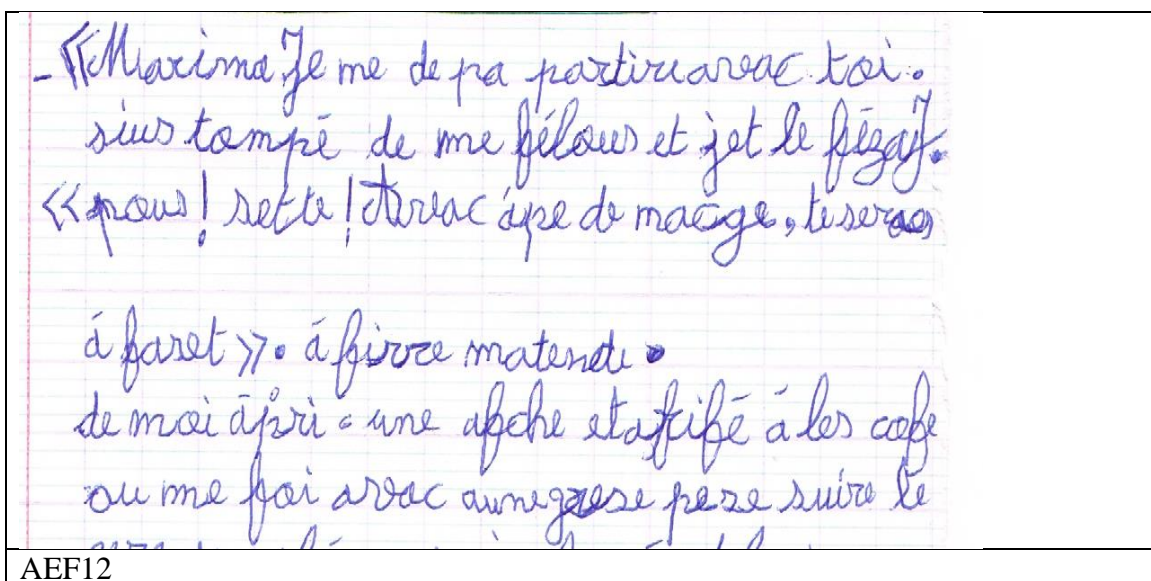 - «Maxima Je me de pa partire avac toi.
sius tompé de me félous et jet le fézaj.
«pous! sette! Avac ápe de maège, te seras
á faret». á firre matende.
de moi ápri. une afche et afifé á les cafe
ou me foi avac aune grese peze suire le
AEF12